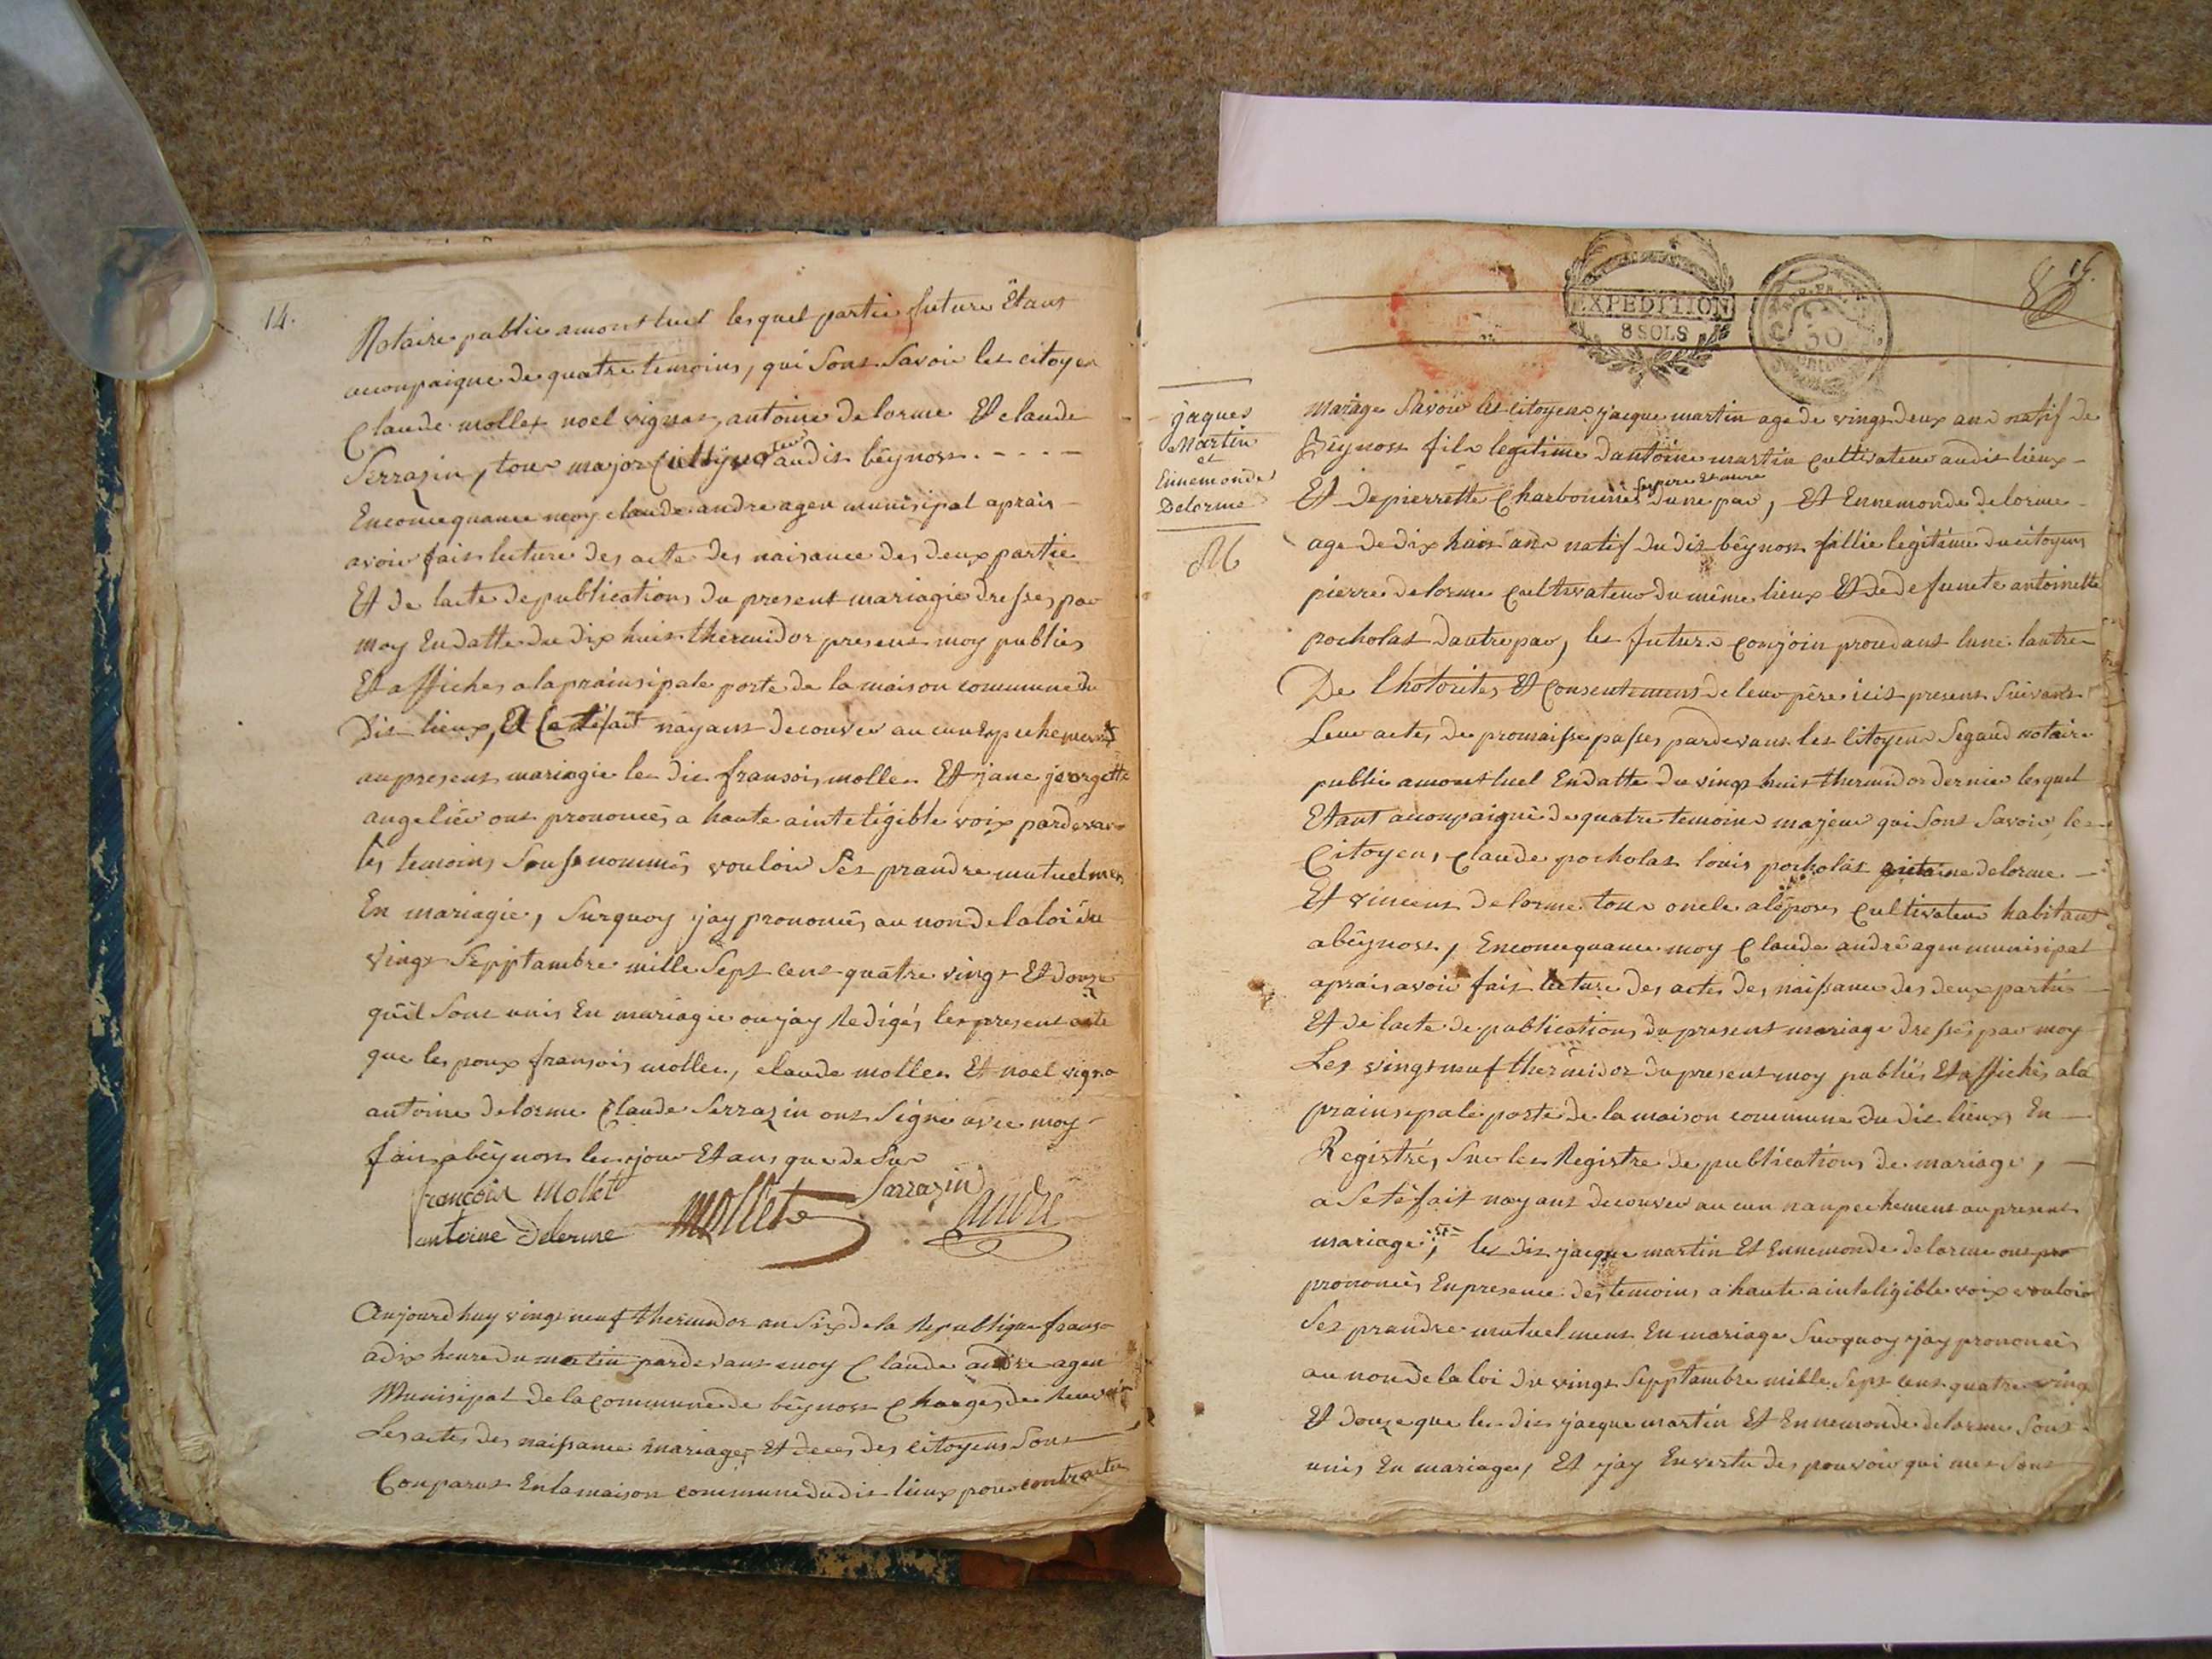 14.
Notaire public amontluel lesquel partie future Etant
acconpaigne de quatre temoins, qui Sont Savoir les citoyen
Claude mollet noel vignat, antoine delorme Et claude
Serrazin, tous major Cultivateur audit bêynost - - - -
Enconcequance moy claude andre agen munisipal aprais
avoir fait lecture des acte des naisance des deux partie
Et de lacte de publications du present mariagie dresses par
moy En datte du dix huit thermidor present moy publies
Et affiches a la prainsipale porte de la maison commune du
Dit lieux, Et
nayant decouver aucun
au present mariagie le dit fransois mollet Et jane jeorgette
angelier ont prononcés a haute ainteligible voix pardevant
les temoins Sousnommés vouloir Ses prandre mutuelment
En mariagie, Surquoy jay prononcés au non de la loi du
vingt Sepptambre mille Sept cent quatre vingt Et douze
quil Sont unis En mariagie ou jay Redigés le present acte
que les poux fransois mollet, claude mollet Et noel vignat
antoine delorme Claude Serrazin ont Signé avec moy
fait abêynost les jour Et ans que de Sur
francois Mollet Sarrazin
antoine Delorme Mollet andré
Aujourdhuy vingt neuf thermidor an Six de la Republique franse
a dix heure du matin pardevant moy Claude andre agen
Munisipal de la commune de bêynost Charges de Recevoir
Les actes des naissance mariages Et deces des citoyens Sont
Conparut En la maison commune dudit lieux pour contracter
15.
EXPEDITION
8 SOLS
30
jaques
Martin
et
Ennemonde
Delorme
M
Mariage Savoir les citoyens jacque martin age de vingt deux ans natif de
Bêynost fils legitime dantoine martin cultivateur audit lieux
Et de pierrette Charbonnie Sepere Et mere dune par, Et Ennemonde delorme
age de dix huit ans natif du dit bêynost fillie legitime du citoyens
pierre delorme Cultivateur du même lieux Et de defuncte antoinette
pocholat dautre par, les futurs conjoin prondant lune lautre
De lhotorites Et Consentement de leur père icit present Suivant
Leur actes de promaisse passes pardevant les citoyens Segaud notaire
public amontluel En datte du vingt huit thermidor dernier lesquel
Etant acconpaigné de quatre temoins majeur qui Sont Savoir les
Citoyens Claude pocholat louis pocholat antoine delorme
Et vincent delorme tous oncle Cultivateur habitant
abêynost, Enconcequance moy Claude andré agen munisipal
aprais avoir fait lecture des actes des naissance des deux partie
Et de lacte de publications du present mariage dressés par moy
Les vingt neuf thermidor du present moy publiés Et affichés a la
prainsepale porte de la maison commune du dit lieux En
Registrés Sur les Registre de publications de mariage,
a Setéfait nayant decouver aucun nanpechement au present
mariage, les dit jacque martin Et Ennemonde delorme ont pro
prononcés En presence des temoins a haute ainteligible voix vouloir
Ses prandre mutuelment En mariage Surquoy jay prononcés
au non de la loi du vingt Sepptambre mille Sept cent quatre vingt
Et douze que les dit jacque martin Et Ennemonde delorme Sont
unis En mariage, Et jay En vertu des pouvoir qui me Sont